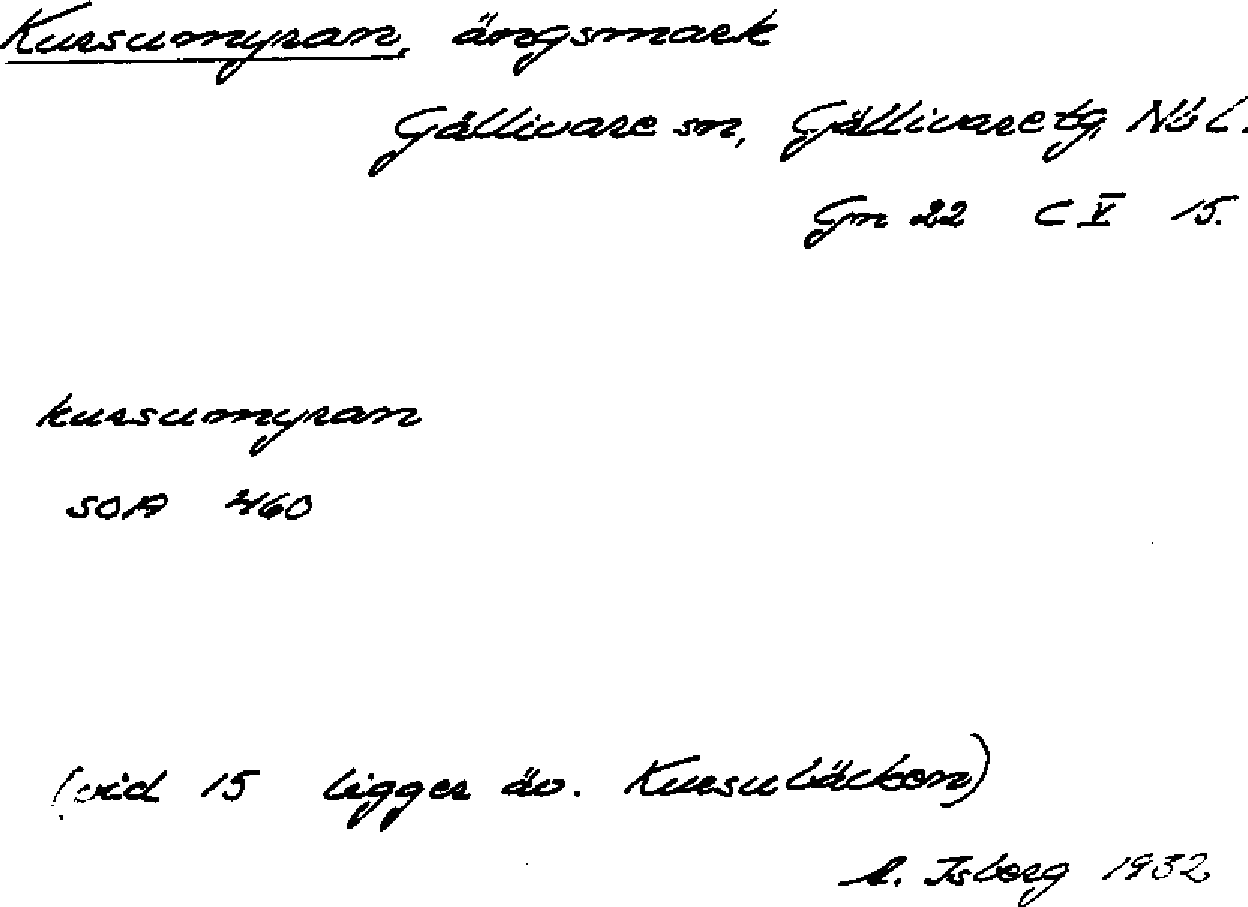 Kursumyran, ängsmark
Gällivare sn, Gällivare tg, Nb L.
Gm 22 C V 15.
kursumyran
SOA 460
(vid 15 ligger äv. Kursubäcken)
A. Isberg 1932